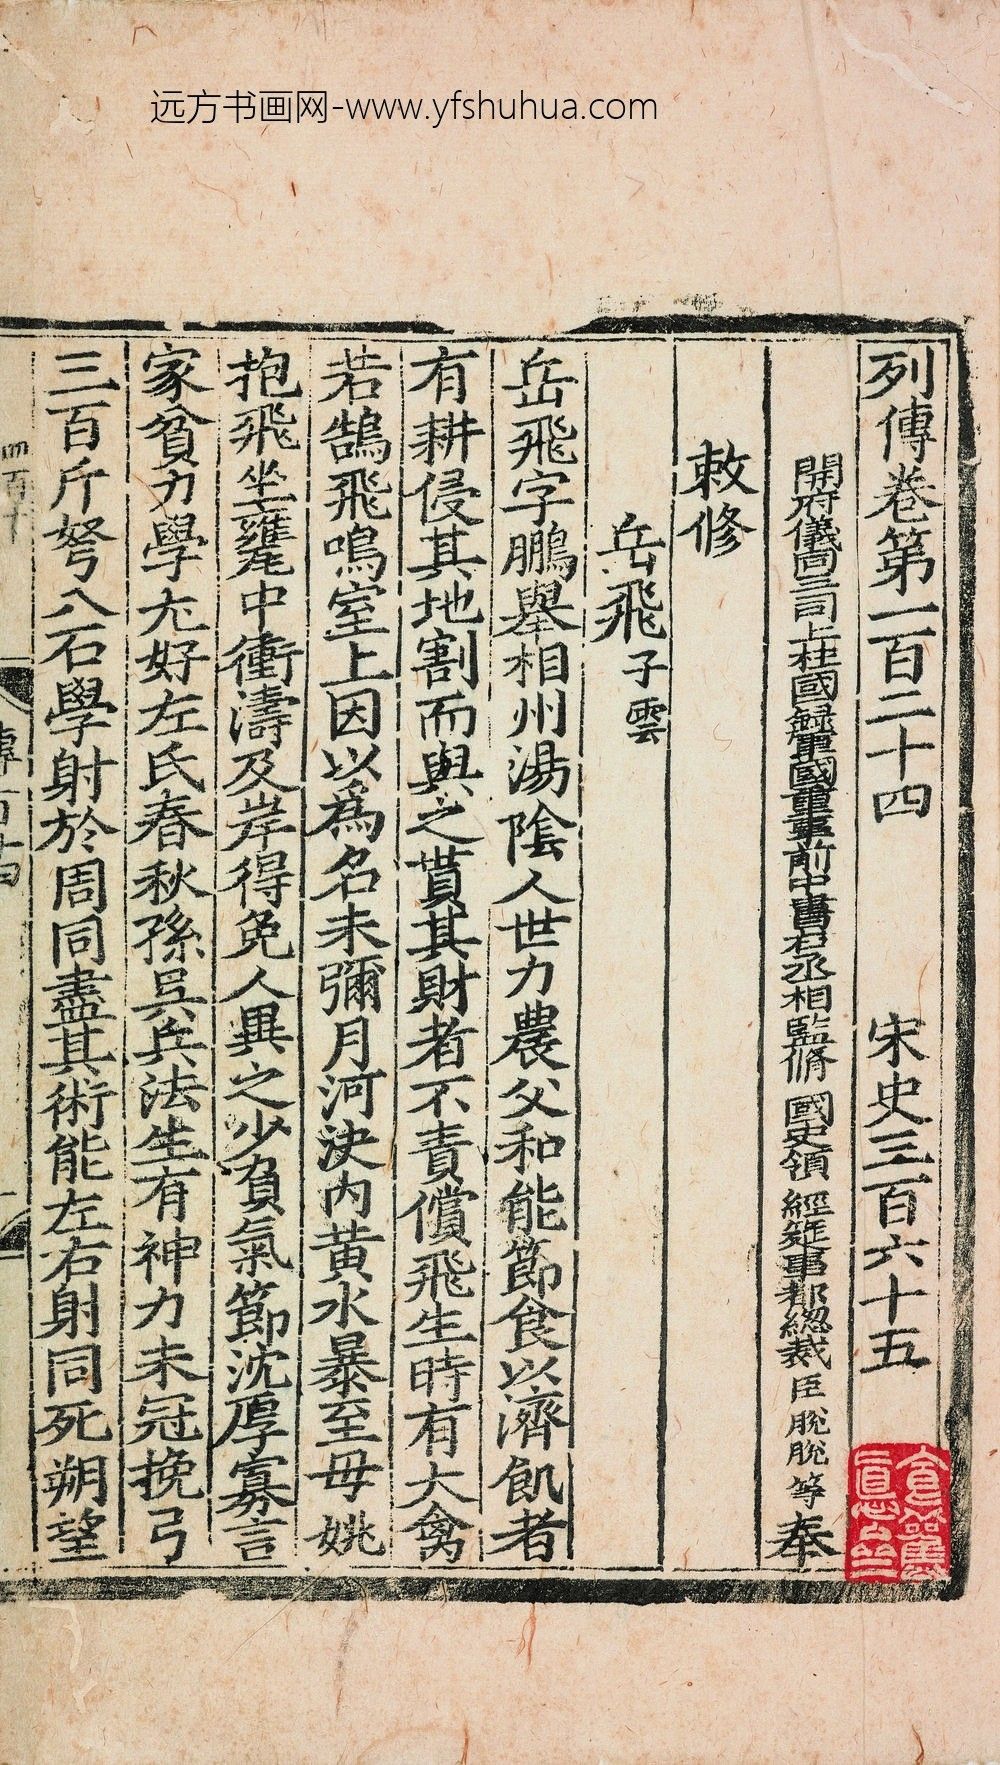 远方书画网-www.yfshuhua.com
列傳卷第一百二十四 宋史三百六十五
開府儀同三司上柱國録軍國重事前中書右丞相監脩 國史領 經筵事都緫裁 臣 脫脫 等 奉
敕修
岳飛 子雲
岳飛字鵬舉相州湯陰人世力農父和能節食以濟飢者
有耕侵其地割而與之貰其財者不責償飛生時有大禽
若鵠飛鳴室上因以爲名未彌月河決內黄水暴至母姚
抱飛坐甕中衝濤及岸得免人異之少負氣節沈厚寡言
家貧力學尤好左氏春秋孫吳兵法生有神力未冠挽弓
三百斤弩八石學射於周同盡其術能左右射同死朔望